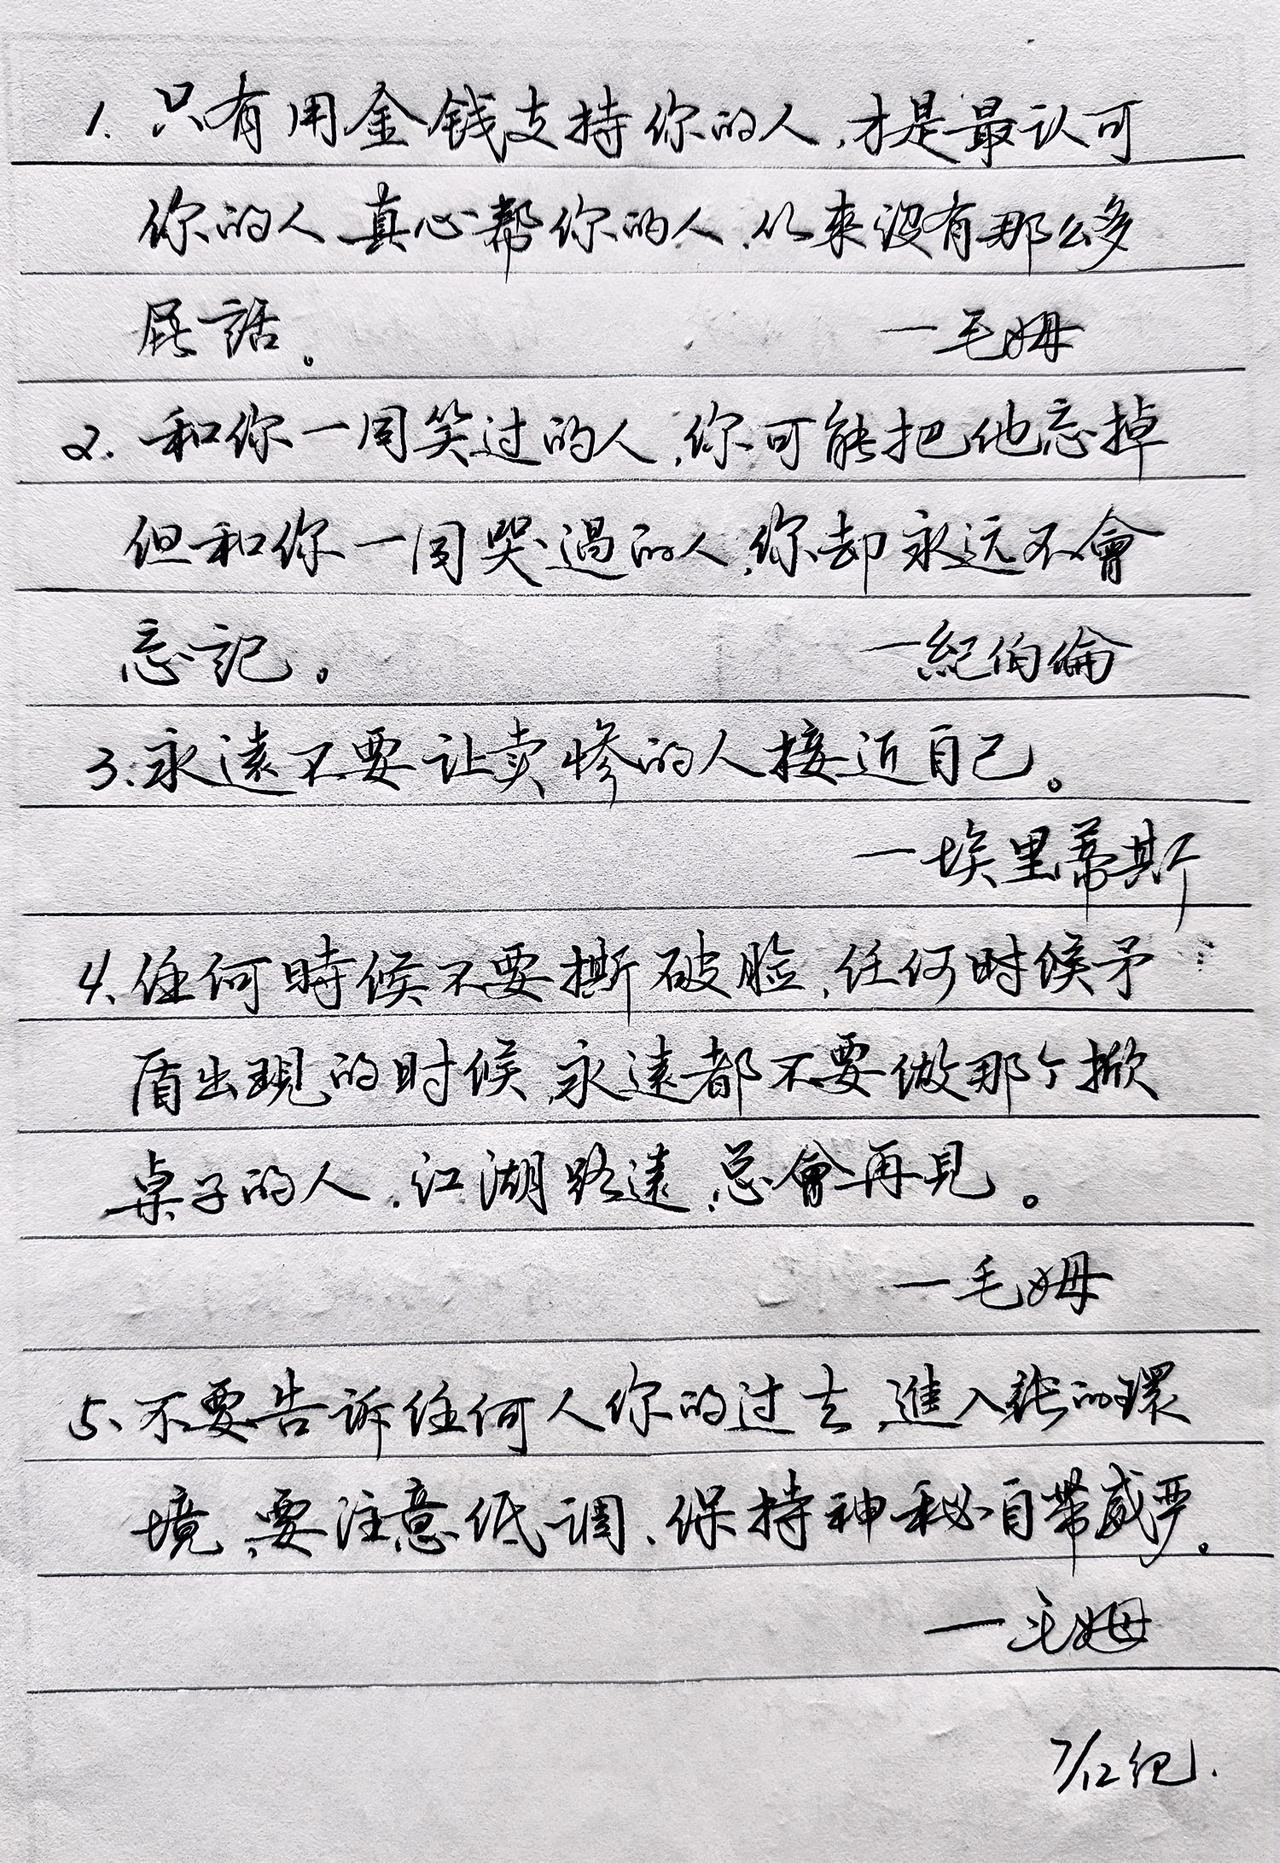 1. 只有用金钱支持你的人,才是最认可
你的人,真心帮你的人,从来没有那么多
屁話。 一毛姆
2. 和你一同笑过的人,你可能把他忘掉
但和你一同哭過的人,你却永远不會
忘記。 一紀伯倫
3.永遠不要让卖惨的人接近自己。
一埃里蒂斯
4、任何時候不要撕破脸,任何时候矛
盾出現的时候,永遠都不要做那个掀
桌子的人,江湖路遠,总會再見。
一毛姆
5、不要告訴任何人你的过去,進入新的環
境,要注意低调、保持神秘自带威严。
一毛姆
7/12纪.